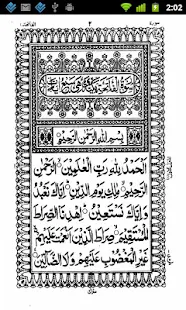 2:02
٢
سورة الفاتحة مكية وهي سبع آيات
بِسْمِ اللّٰهِ الرَّحْمٰنِ الرَّحِيْمِ
اَلْحَمْدُ لِلّٰهِ رَبِّ الْعٰلَمِيْنَ ۙ الرَّحْمٰنِ
الرَّحِيْمِ ۙ مٰلِكِ يَوْمِ الدِّيْنِ ؕ اِيَّاكَ نَعْبُدُ
وَ اِيَّاكَ نَسْتَعِيْنُ ؕ اِهْدِنَا الصِّرَاطَ
الْمُسْتَقِيْمَ ۙ صِرَاطَ الَّذِيْنَ اَنْعَمْتَ عَلَيْهِمْ
غَيْرِ الْمَغْضُوْبِ عَلَيْهِمْ وَلَا الضَّآلِّيْنَ